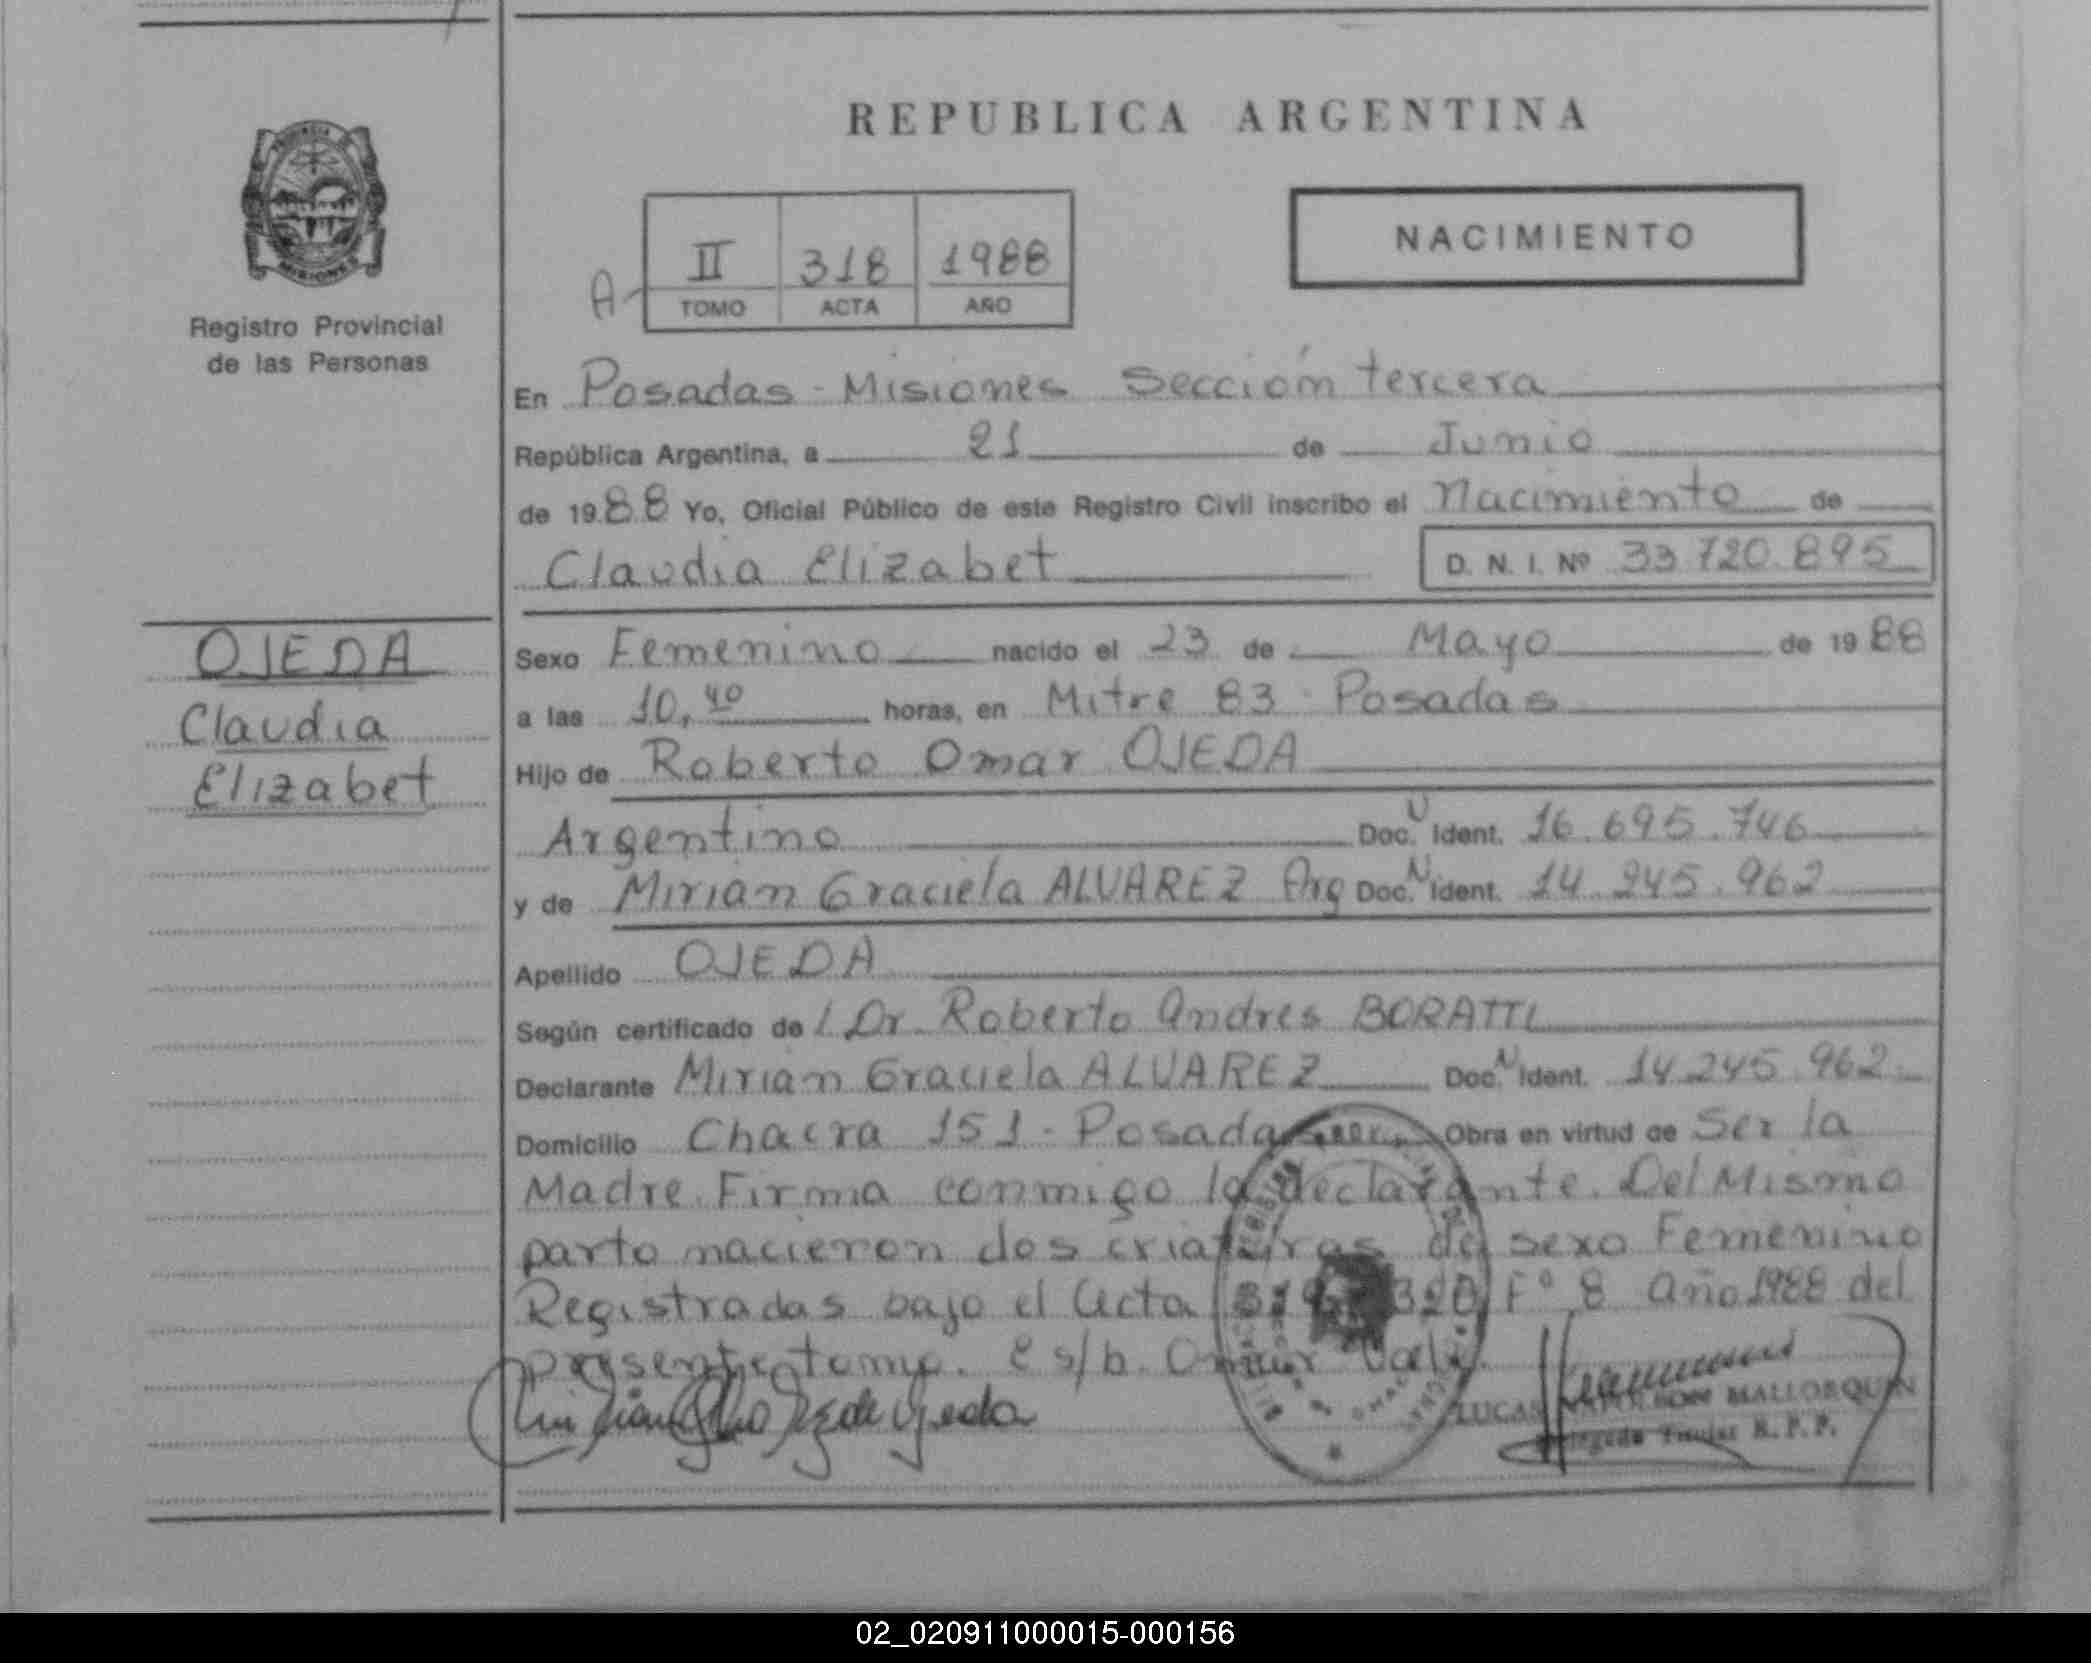 REPUBLICA ARGENTINA
MISIONES
Registro Provincial
de las Personas
A-
II 318 1988
TOMO ACTA AÑO
NACIMIENTO
En Posadas - Misiones Sección tercera
República Argentina, a 21 de Junio
de 1988 Yo, Oficial Público de este Registro Civil inscribo el Nacimiento de
Claudia Elizabet D. N. I. Nº 33.720.895
OJEDA
Claudia
Elizabet
Sexo Femenino nacido el 23 de Mayo de 1988
a las 10,40 horas, en Mitre 83 - Posadas
Hijo de Roberto Omar OJEDA
Argentino Doc. Ident. 16.695.746
y de Mirian Graciela ALVAREZ Arg Doc. N Ident. 14.245.962
Apellido OJEDA
Según certificado de Dr. Roberto Andres BORATTI
Declarante Mirian Graciela ALVAREZ Doc. N Ident. 14.245.962
Domicilio Chacra 151 - Posadas Obra en virtud de Ser la
Madre. Firma conmigo la declarante. Del Mismo
parto nacieron dos criaturas de sexo Femenino
Registradas bajo el Acta 320 Fº 8 Año 1988 del
presente tomo. e s/b. Omar Vale.
LUCAS NAPOLEON MALLORQUIN
Delegado Titular R.P.P.
02_020911000015-000156